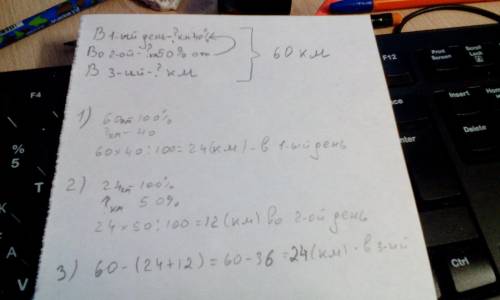 В 1-ый день-?км 40%
Во 2-ой-? 50% от
В 3-ий-? км
60 км
1)
60км 100%
?км - 40
60×40:100=24(км)-в 1-ый день
2)
24км 100%
?км 50%
24×50:100=12(км) во 2-ой день
3) 60-(24+12)=60-36=24(км)-в 3-ий
F4
%
5
F12
Print
Screen
Scroll
Lock
Insert
Home
Delete
End
Ctrl